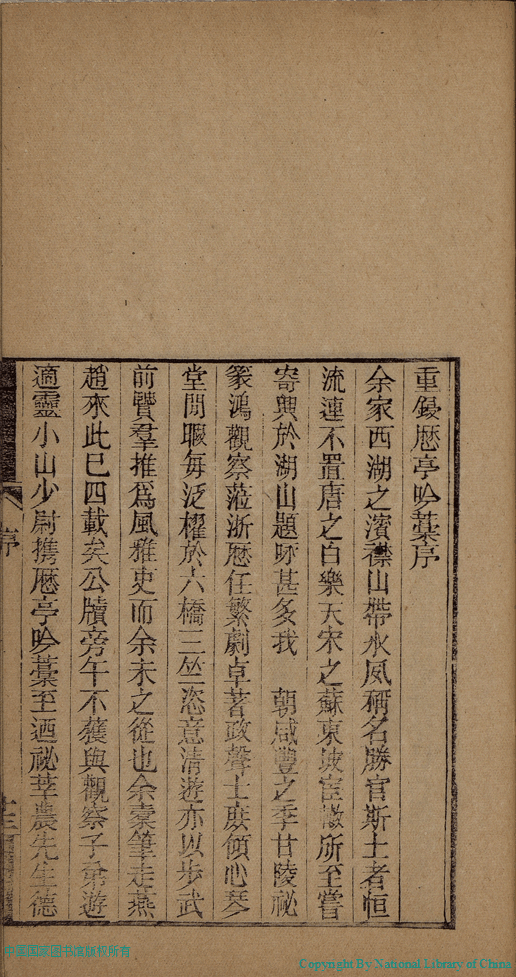 重鋟歷亭吟藁序
余家西湖之濱襟山帶水夙稱名勝官斯土者恒
流連不置唐之白樂天宋之蘇東坡宦轍所至嘗
寄興於湖山題咏甚多我 朝咸豐之季甘陵祕
篆鴻觀察蒞浙歷任繁劇卓著政聲士庶傾心琴
堂閒暇每泛櫂於六橋三竺恣意清遊亦以步武
前賢羣推爲風雅吏而余未之從也余橐筆走燕
趙來此已四載矣公牘旁午不獲與觀察子弟遊
適靈小山少尉携歷亭吟藁至迺祕莘農先生德
序
一中国国家图书馆版权所有
Copyright By National Library of China